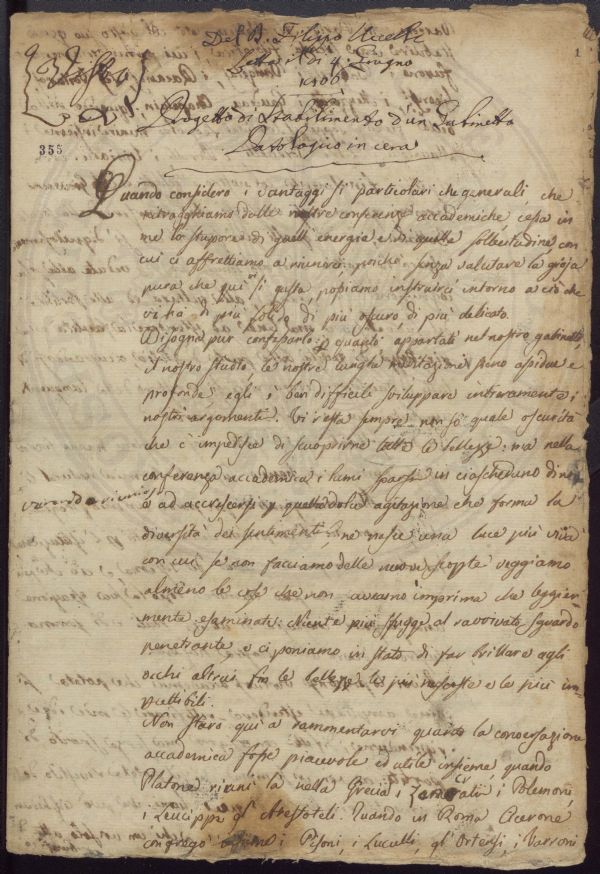 Del D. Filippo Uccelli
Letta il dì 4 Giugno
1806
1
Progetto di Stabilimento d'un Gabinetto
355
Patologico in cera
Quando considero i vantaggi sì particolari che generali, che
ritragghiamo dalle nostre conferenze accademiche cessa in
me lo stupore di quell'energia e di quella sollecitudine con
cui ci affrettiamo a riunirci poiché senza valutare la gioja
pura che qui si gusta, possiamo instruirci intorno a ciò che
vi ha di più solido di più oscuro di più delicato.
Bisogna pur confessarlo: p quanto appartati nel nostro gabinetto
il nostro studio le nostre lunghe meditazioni siano assidue e
profonde egli è ben difficile sviluppare intieramente i
nostri argomenti. Vi resta sempre non so quale oscurità
che c'impedisce di scuoprirne tutte le bellezze: ma nella
conferenza accademica i lumi sparsi in ciascheduno di noi
venendo a riunirsi
e ad accrescersi p quella dolce agitazione che forma la
diversità dei sentimenti, ne nasce una luce più viva
con cui se non facciamo delle nuove scoperte veggiamo
almeno le cose che non avevamo imprima che leggier-
mente esaminate. Niente più sfugge al ravvivato sguardo
penetrante e ci poniamo in stato di far brillare agli
occhi altrui fin le bellezze le più nascoste e le più im-
percettibili.
Non starò qui a rammentarvi quanto la conversazione
accademica fosse piacevole ed utile insieme, quando
Platone riuniva nella Grecia i Zenocrati, i Polemoni,
i Leucippi gl'Aristoteli. Quando in Roma Cicerone
i Pisoni, i Luculli, gl'Ortensi, i Varroni